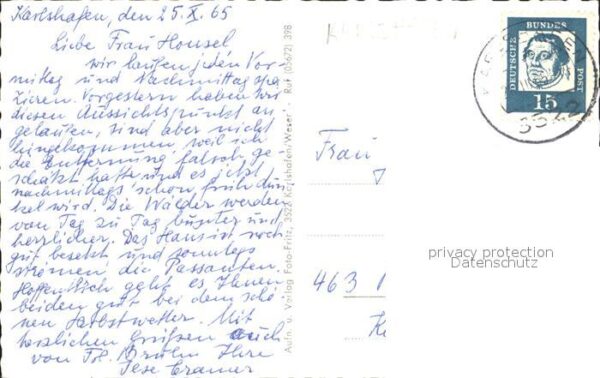 Karlshafen, den 25.X.65
Liebe Frau Housel
wir laufen jeden Vor-
mittag und Nachmittag spa-
zieren. Vorgestern haben wir
diesen Aussichtspunkt an
gelaufen, sind aber nicht
hingekommen, weil ich
die Entfernung falsch ge-
schätzt hatte und es jetzt
nachmittags schon früh dun-
kel wird. Die Wälder werden
von Tag zu Tag bunter und
herrlicher. Das Haus ist noch
gut besetzt und sonntags
strömen die Passanten.
Hoffentlich geht es Ihnen
beiden gut bei dem schö-
nen Herbstwetter. Mit
herzlichen Grüßen auch
von Frl. Brühm Ihre
Ilse Cramer
Aufn. u. Verlag Foto-Fritz, 3522 Karlshafen/Weser Ruf (05672) 398
DEUTSCHE
BUNDES
POST
15
3522
Frau
463
privacy protection
Datenschutz